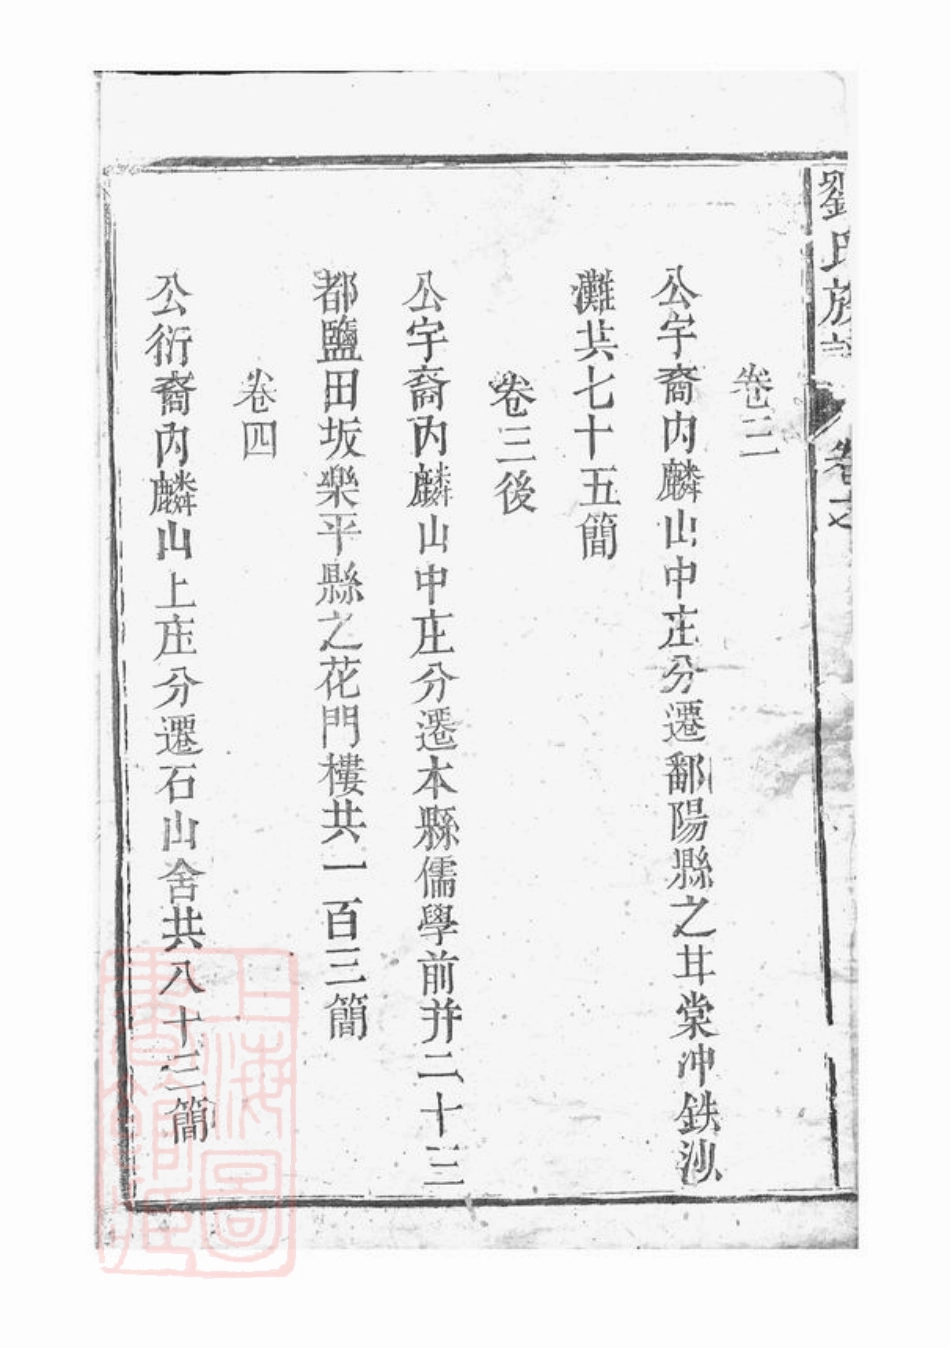 劉氏族
卷三
公宇裔内麟山中庄分遷鄱陽縣之甘棠冲鉄沙
灘共七十五簡
卷三後
公宇裔内麟山中庄分遷本縣儒學前并二十三
都鹽田坂樂平縣之花門樓共一百三簡
卷四
公衍裔内麟山上庄分遷石山舍共八十三簡
上海圖書館藏